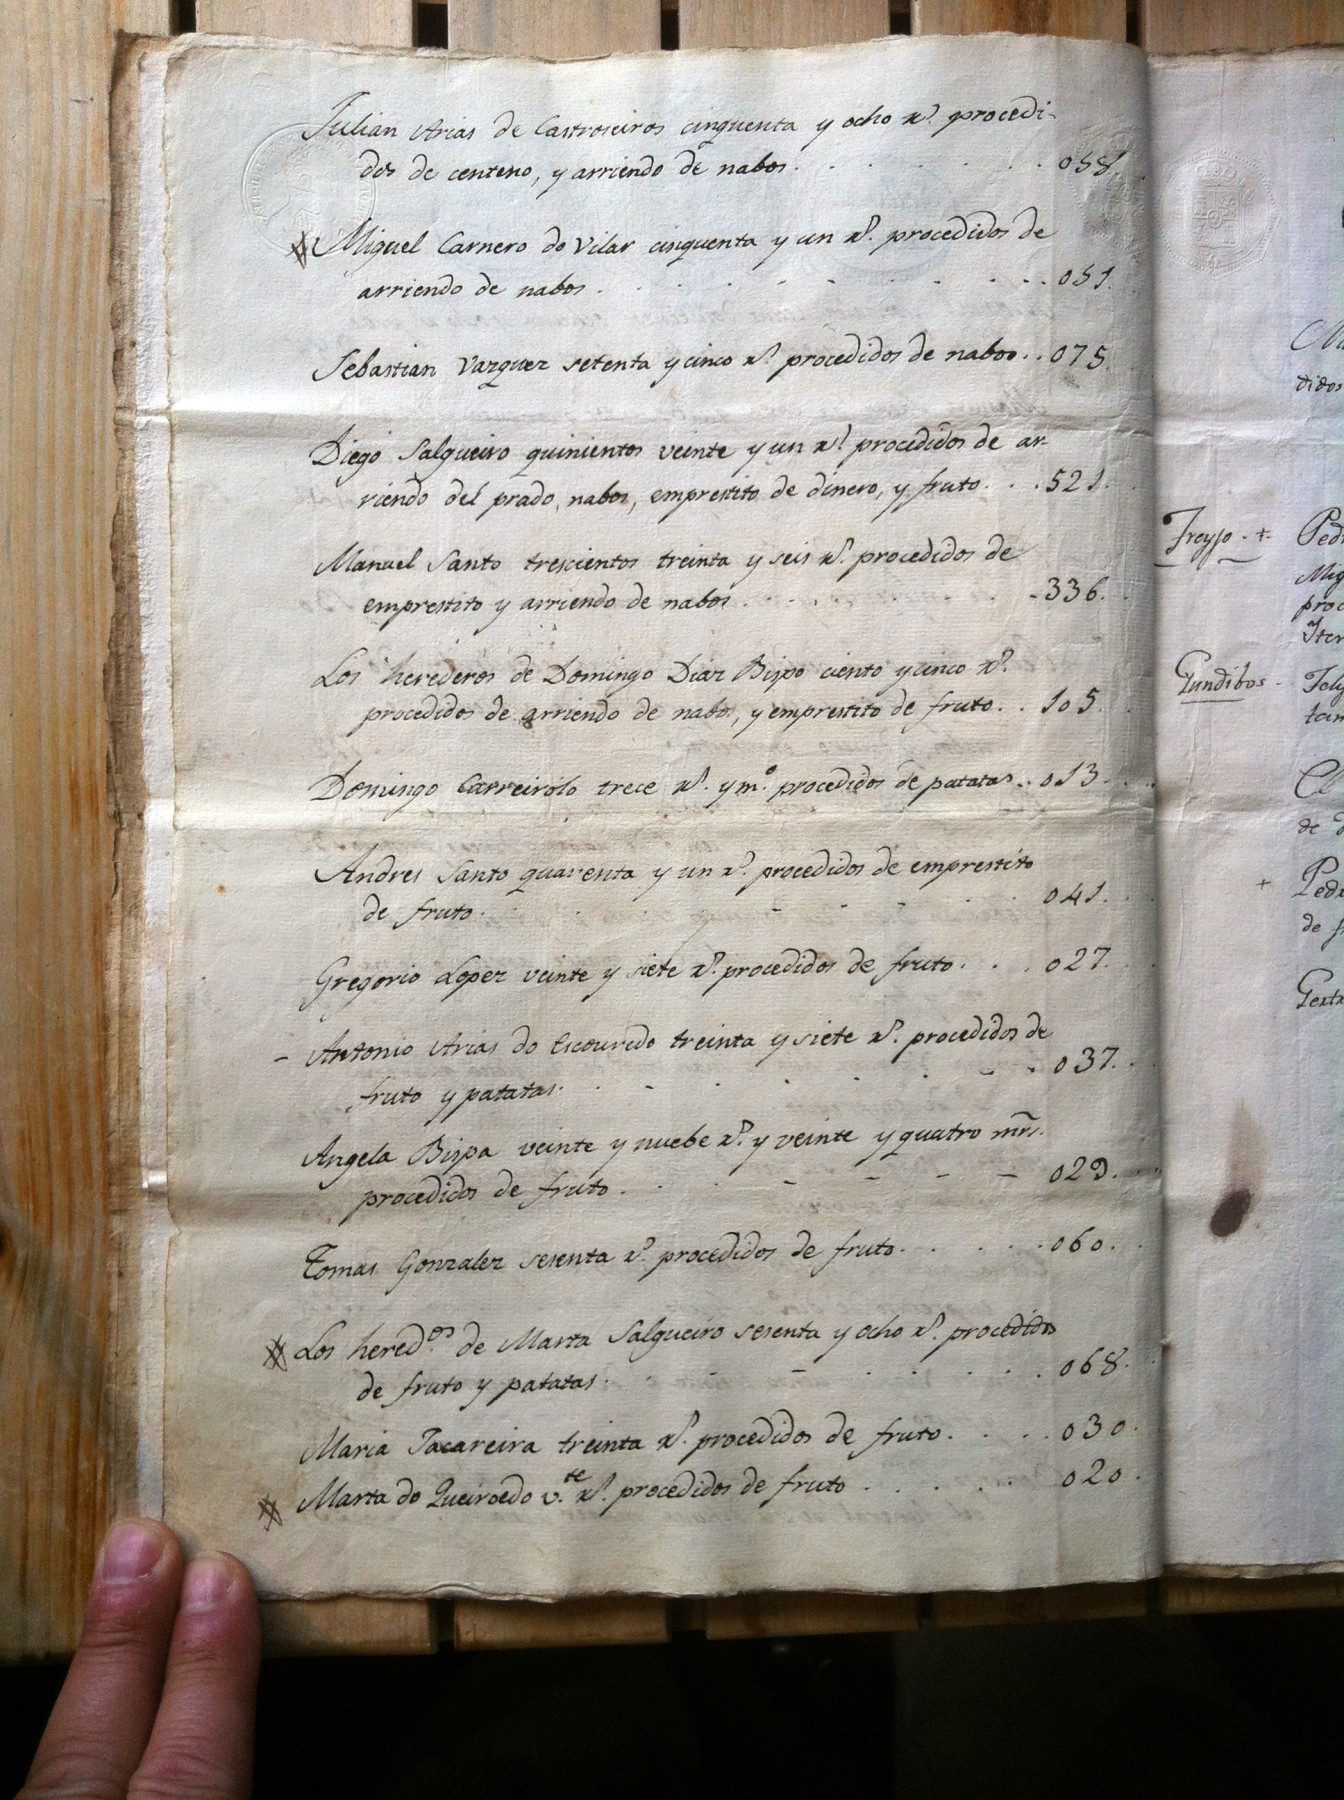 Julian Arias de Castroseiros cinquenta y ocho rs. procedi-
dos de centeno, y arriendo de nabos . . . . . . 058.
Miguel Carnero do Vilar cinquenta y un rs. procedidos de
arriendo de nabos . . . . . . . . . 051.
Sebastian Vazquez setenta y cinco rs. procedidos de nabos . . 075.
Diego Salgueiro quinientos veinte y un rs. procedidos de ar-
riendo del prado, nabos, emprestito de dinero, y fruto . . . 521.
Manuel Santo trescientos treinta y seis rs. procedidos de
emprestito y arriendo de nabos . . . . . . 336.
Los herederos de Domingo Diaz Bispo ciento y cinco rs.
procedidos de arriendo de nabos, y emprestito de fruto . . 105.
Domingo Carreirólo trece rs. y mo. procedidos de patatas . . 013.
Andres Santo quarenta y un rs. procedidos de emprestito
de fruto . . . . . . . . . 041.
Gregorio Lopez veinte y siete rs. procedidos de fruto . . . 027.
- Antonio Arias do Escouredo treinta y siete rs. procedidos de
fruto y patatas . . . . . . . . 037.
Angela Bispa veinte y nuebe rs. y veinte y quatro mrs.
procedidos de fruto . . . - - - - 029.
Tomas Gonzalez sesenta rs. procedidos de fruto . . . . . 060.
Los heredos. de Marta Salgueiro sesenta y ocho rs. procedidos
de fruto y patatas . . . . . . . . 068.
Maria Jacareira treinta rs. procedidos de fruto . . . . 030.
Marta do Queiroedo vte. rs. procedidos de fruto . . . . . 020.
didos
Freyjo - +
Gundibos -
de
+
de